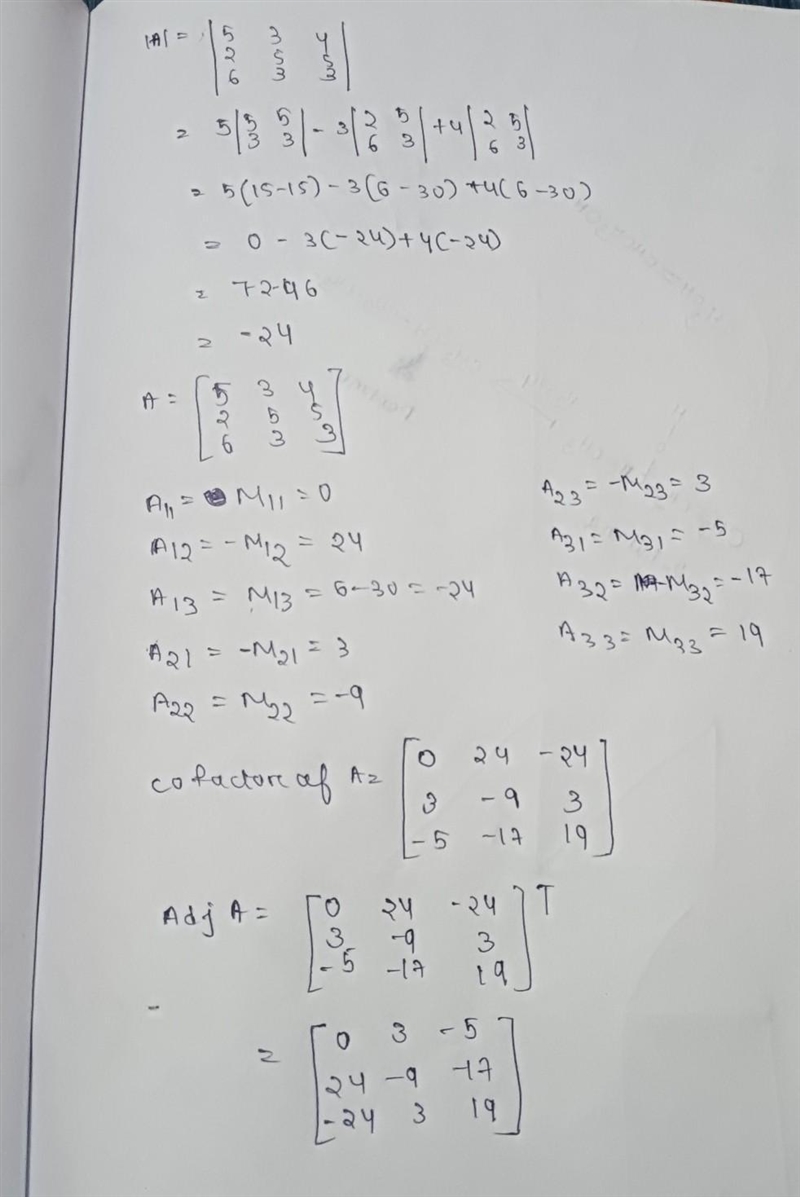 |A| = | 5 3 4 |
| 2 5 5 |
| 6 3 3 |
= 5 | 5 5 | - 3 | 2 5 | + 4 | 2 5 |
| 3 3 | | 6 3 | | 6 3 |
= 5(15-15) - 3(6-30) + 4(6-30)
= 0 - 3(-24) + 4(-24)
= 72-96
= -24
A = [ 5 3 4 ]
[ 2 5 5 ]
[ 6 3 3 ]
A11 = M11 = 0
A12 = -M12 = 24
A13 = M13 = 6-30 = -24
A21 = -M21 = 3
A22 = M22 = -9
A23 = -M23 = 3
A31 = M31 = -5
A32 = -M32 = -17
A33 = M33 = 19
cofactor of A = [ 0 24 -24 ]
[ 3 -9 3 ]
[ -5 -17 19 ]
Adj A = [ 0 24 -24 ] T
[ 3 -9 3 ]
[ -5 -17 19 ]
= [ 0 3 -5 ]
[ 24 -9 -17 ]
[ -24 3 19 ]